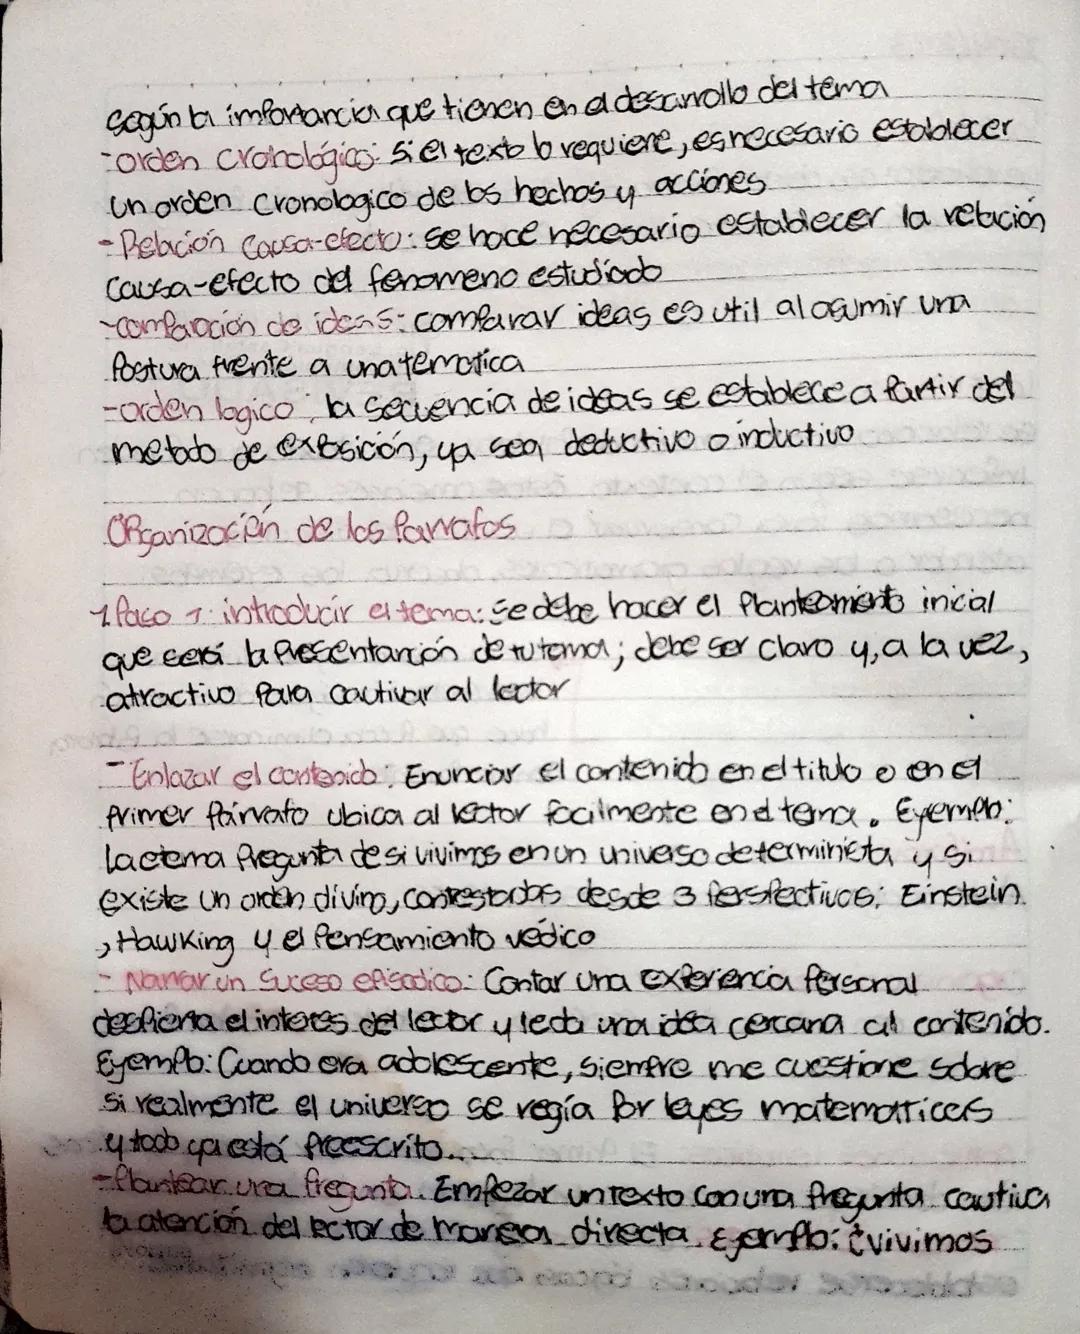 según la importancia que tienen en el desarrollo del tema
-orden cronológico: si el texto lo requiere, es necesario establecer
un orden cronologico de los hechos y acciones
- Relación causa-efecto: se hace necesario establecer la relación
causa-efecto del fenomeno estudiado
-comparación de ideas: comparar ideas es util al asumir una
postura frente a una tematica
-orden logico: la secuencia de ideas se establece a partir del
metodo de exposición, ya sea, deductivo o inductivo
Organización de los Parrafos
1. Paso 1: introducir el tema: se debe hacer el planteamiento inicial
que será la presentanción de tu tema; debe ser claro y, a la vez,
atractivo para cautivar al lector
- Enlazar el contenido: Enunciar el contenido en el titulo o en el
primer párrafo ubica al lector facilmente en el tema. Eyemplo:
La eterna pregunta de si vivimos en un universo determinista y si
existe un orden divino, contestadas desde 3 perspectivas: Einstein
, Hawking y el pensamiento védico
- Narrar un suceso episodico: Contar una experiencia personal
despierta el interes del lector y le da una idea cercana al contenido.
Eyemplo: Cuando era adolescente, siempre me cuestione sobre
si realmente el universo se regía por leyes matematicas
y todo ya está preescrito...
- Plantear una pregunta. Empezar un texto con una pregunta cautiva
la atención del lector de manera directa. Ejemplo: ¿vivimos